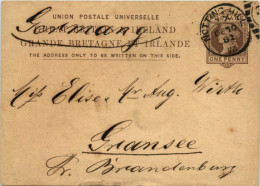 UNION POSTALE UNIVERSELLE
Germany
GREAT BRITAIN & IRELAND
GRANDE BRETAGNE ET IRLANDE
THE ADDRESS ONLY TO BE WRITTEN ON THIS SIDE.
NOTTING HILL
ONE PENNY
Miss Elise Mr. Aug. Wirth
Gransee
Pr. Brandenburg